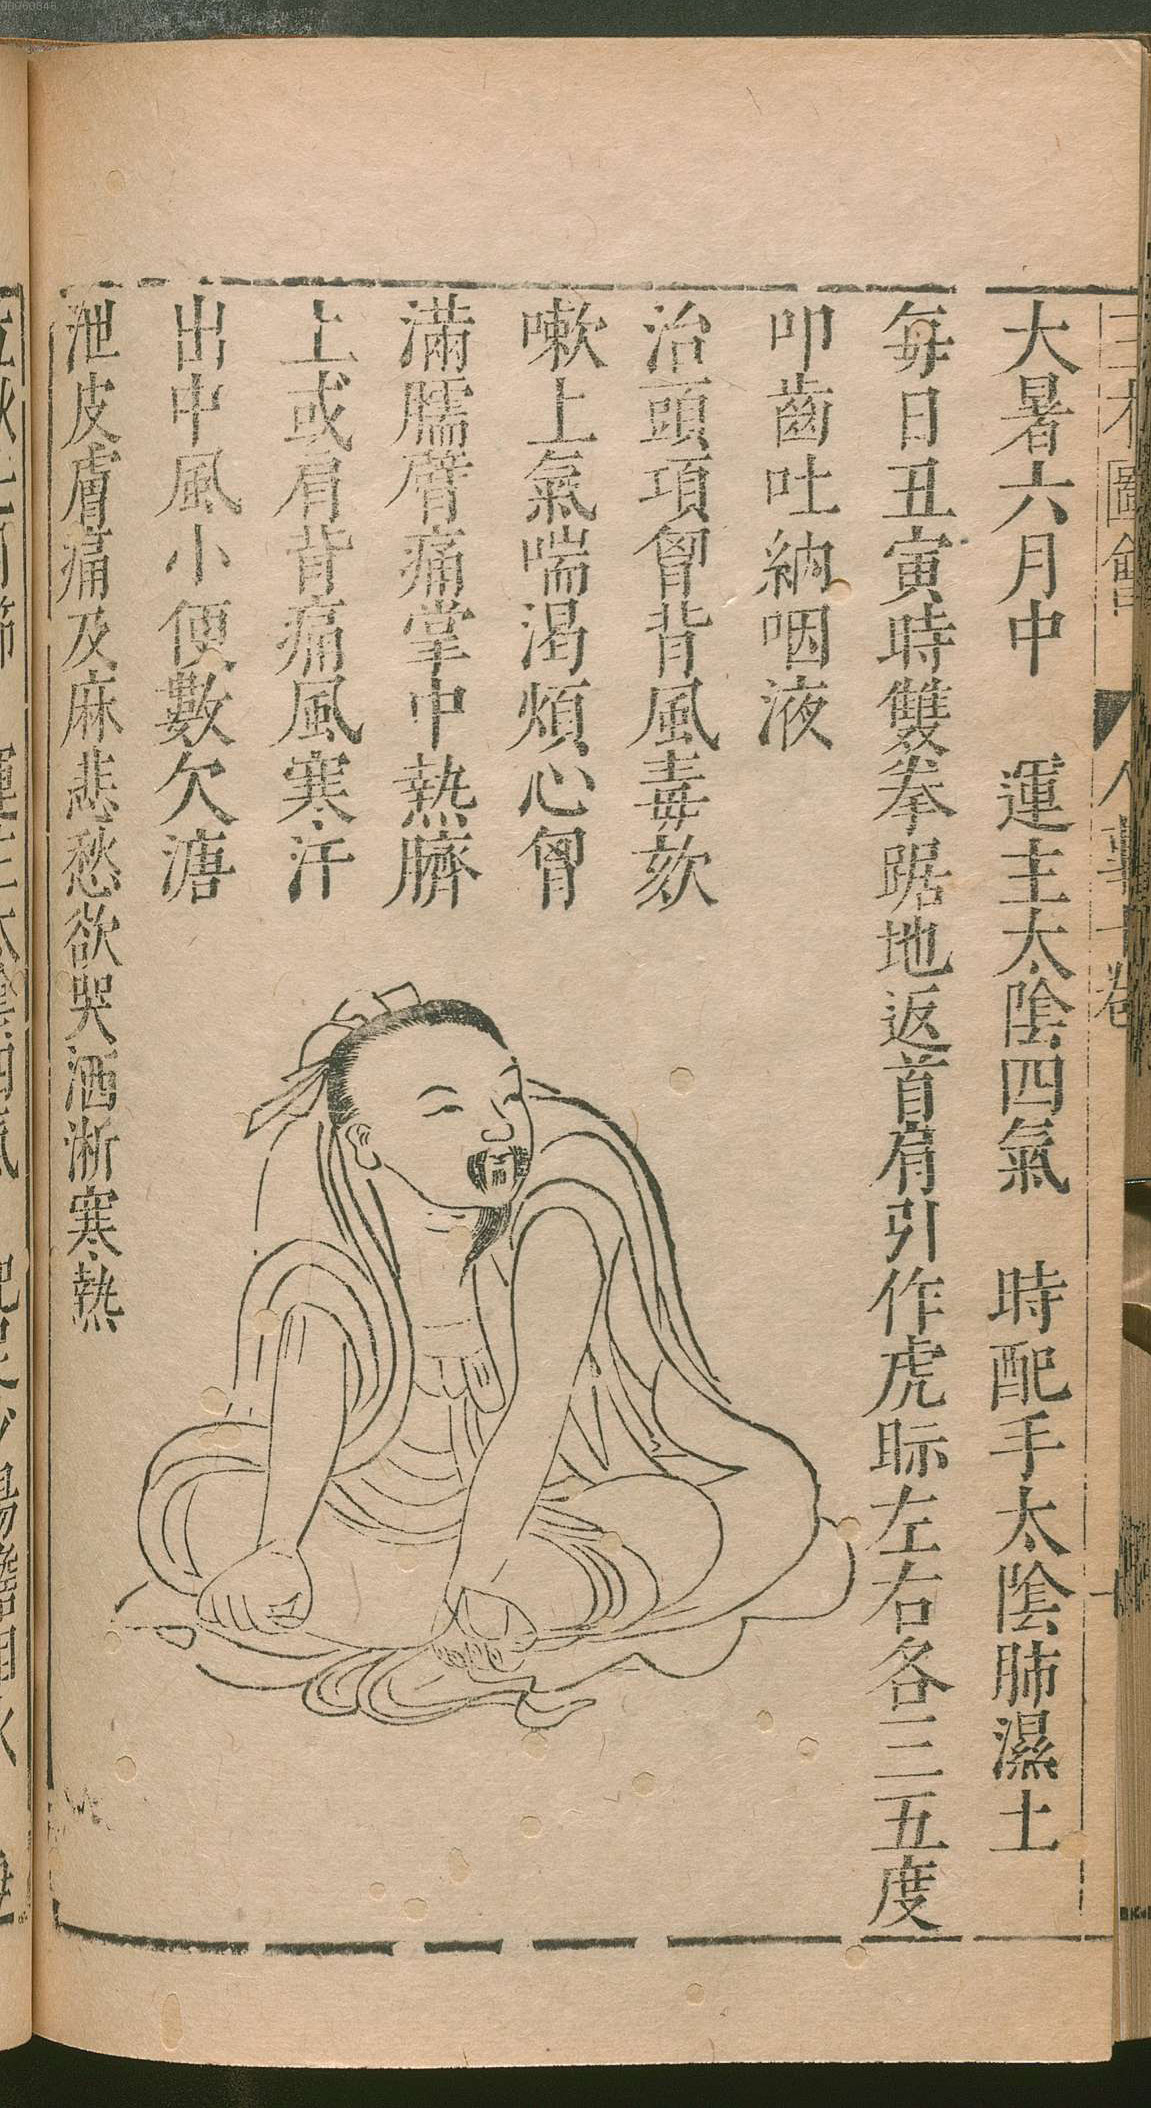 大暑六月中　運主太陰四氣　時配手太陰肺濕土
每日丑寅時雙拳踞地返首肩引作虎眎左右各三五度
叩齒吐納咽液
治頭項胷背風毒欬
嗽上氣喘渴煩心胷
滿臑臂痛掌中熱臍
上或肩背痛風寒汗
出中風小便數欠溏
泄皮膚痛及麻悲愁欲哭洒淅寒熱